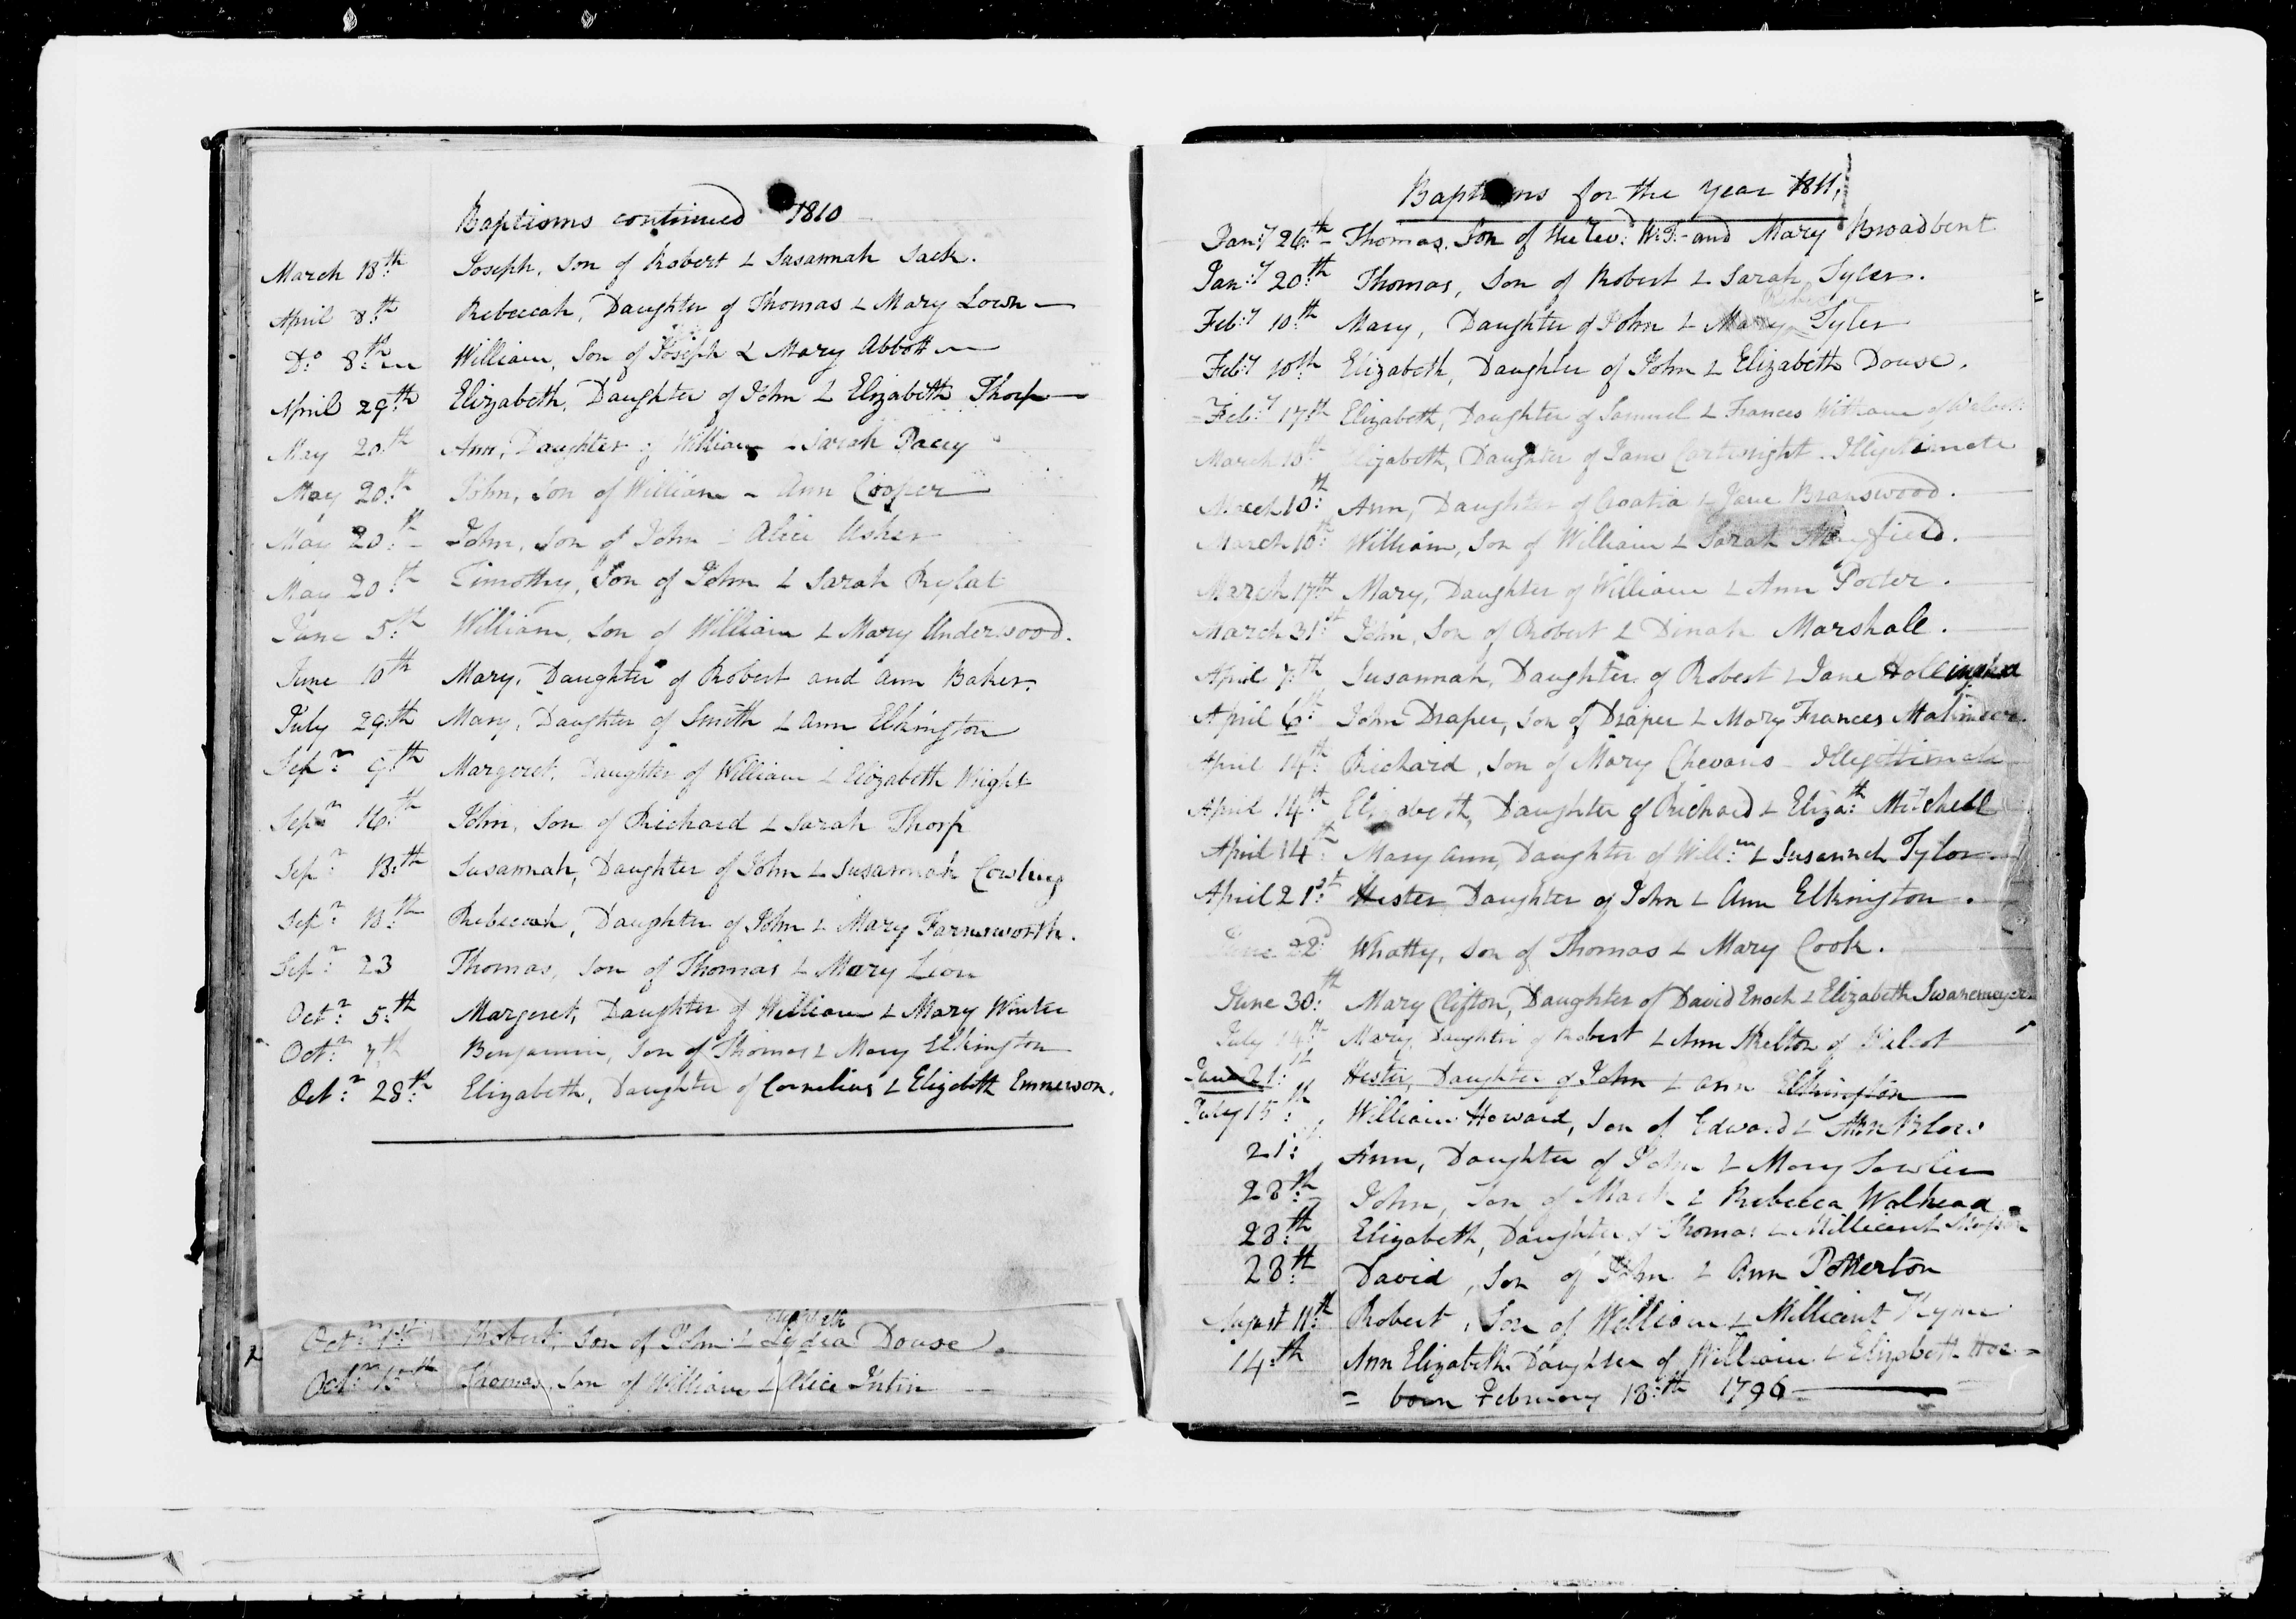 Baptisms continued 1810
March 18th Joseph, Son of Robert & Susannah Sack.
April 8th Rebeccah, Daughter of Thomas & Mary Lown
Do 8th William, Son of Joseph & Mary Abbott
April 29th Elizabeth, Daughter of John & Elizabeth Thorp
May 20th Ann, Daughter of William & Sarah Pacey
May 20th John, Son of William & Ann Cooper
May 20th John, Son of John & Alice Usher
May 20th Timothy, Son of John & Sarah Rylat
June 5th William, Son of William & Mary Underwood.
June 10th Mary, Daughter of Robert and Ann Baker.
July 29th Mary, Daughter of Smith & Ann Elkington
Sepr 9th Margeret, Daughter of William & Elizabeth Wright
Sepr 16th John, Son of Richard & Sarah Thorp
Sepr 18th Susannah, Daughter of John & Susannah Cowling
Sepr 18th Rebeccah, Daughter of John & Mary Farnsworth.
Sepr 23 Thomas, Son of Thomas & Mary Lion
Octr 5th Margeret, Daughter of William & Mary Winter
Octr 7th Benjamin, Son of Thomas & Mary Elkington
Octr 28th Elizabeth, Daughter of Cornelius & Elizabeth Emmerson.
Elizabeth
Octr 1st Robert, Son of John & Lydia Douse.
Octr Thomas, Son of William & Alice
Baptisms for the Year 1811,
Jany 26th Thomas, Son of the Revd W.F. and Mary Broadbent
Jany 20th Thomas, Son of Robert & Sarah Tyler.
Feby 10th Mary, Daughter of John & Mary Tyler
Feby 10th Elizabeth, Daughter of John & Elizabeth Douse.
Feby 17th Elizabeth, Daughter of Samuel & Frances Witham of
March 10th Elizabeth, Daughter of Jane Cartwright. Illegitimate
March 10th Ann, Daughter of & Jane Branswood.
March 10th William, Son of William & Sarah
March 17th Mary, Daughter of William & Ann Porter.
March 31st John, Son of Robert & Dinah Marshall.
April 7th Susannah, Daughter of Robert & Jane
April 6th John Draper, Son of Draper & Mary Frances
April 14th Richard, Son of Mary Chevans Illegitimate
April 14th Elizabeth, Daughter of Richard & Elizath Mitchell
April 14th Mary Ann, Daughter of Willm & Susannah Tyler
April 21st Hester Daughter of John & Ann Elkington.
June 22d Whatty, Son of Thomas & Mary Cook.
June 30th Mary Clifton, Daughter of David Enoch & Elizabeth
July 14th Mary, Daughter of Robert & Ann Skelton of
June 21st Hester, Daughter of John & Ann Elkington
July 15th William Howard, Son of Edward & Ann Blow
21st Ann, Daughter of John & Mary
28th John, Son of Mark & Rebecca Walhead
28th Elizabeth, Daughter of Thomas & Millicent
28th David, Son of John & Ann Potterton
August 11th Robert, Son of William & Millicent Kyme
14th Ann Elizabeth Daughter of William & Elizabeth
= born February 18th 1796